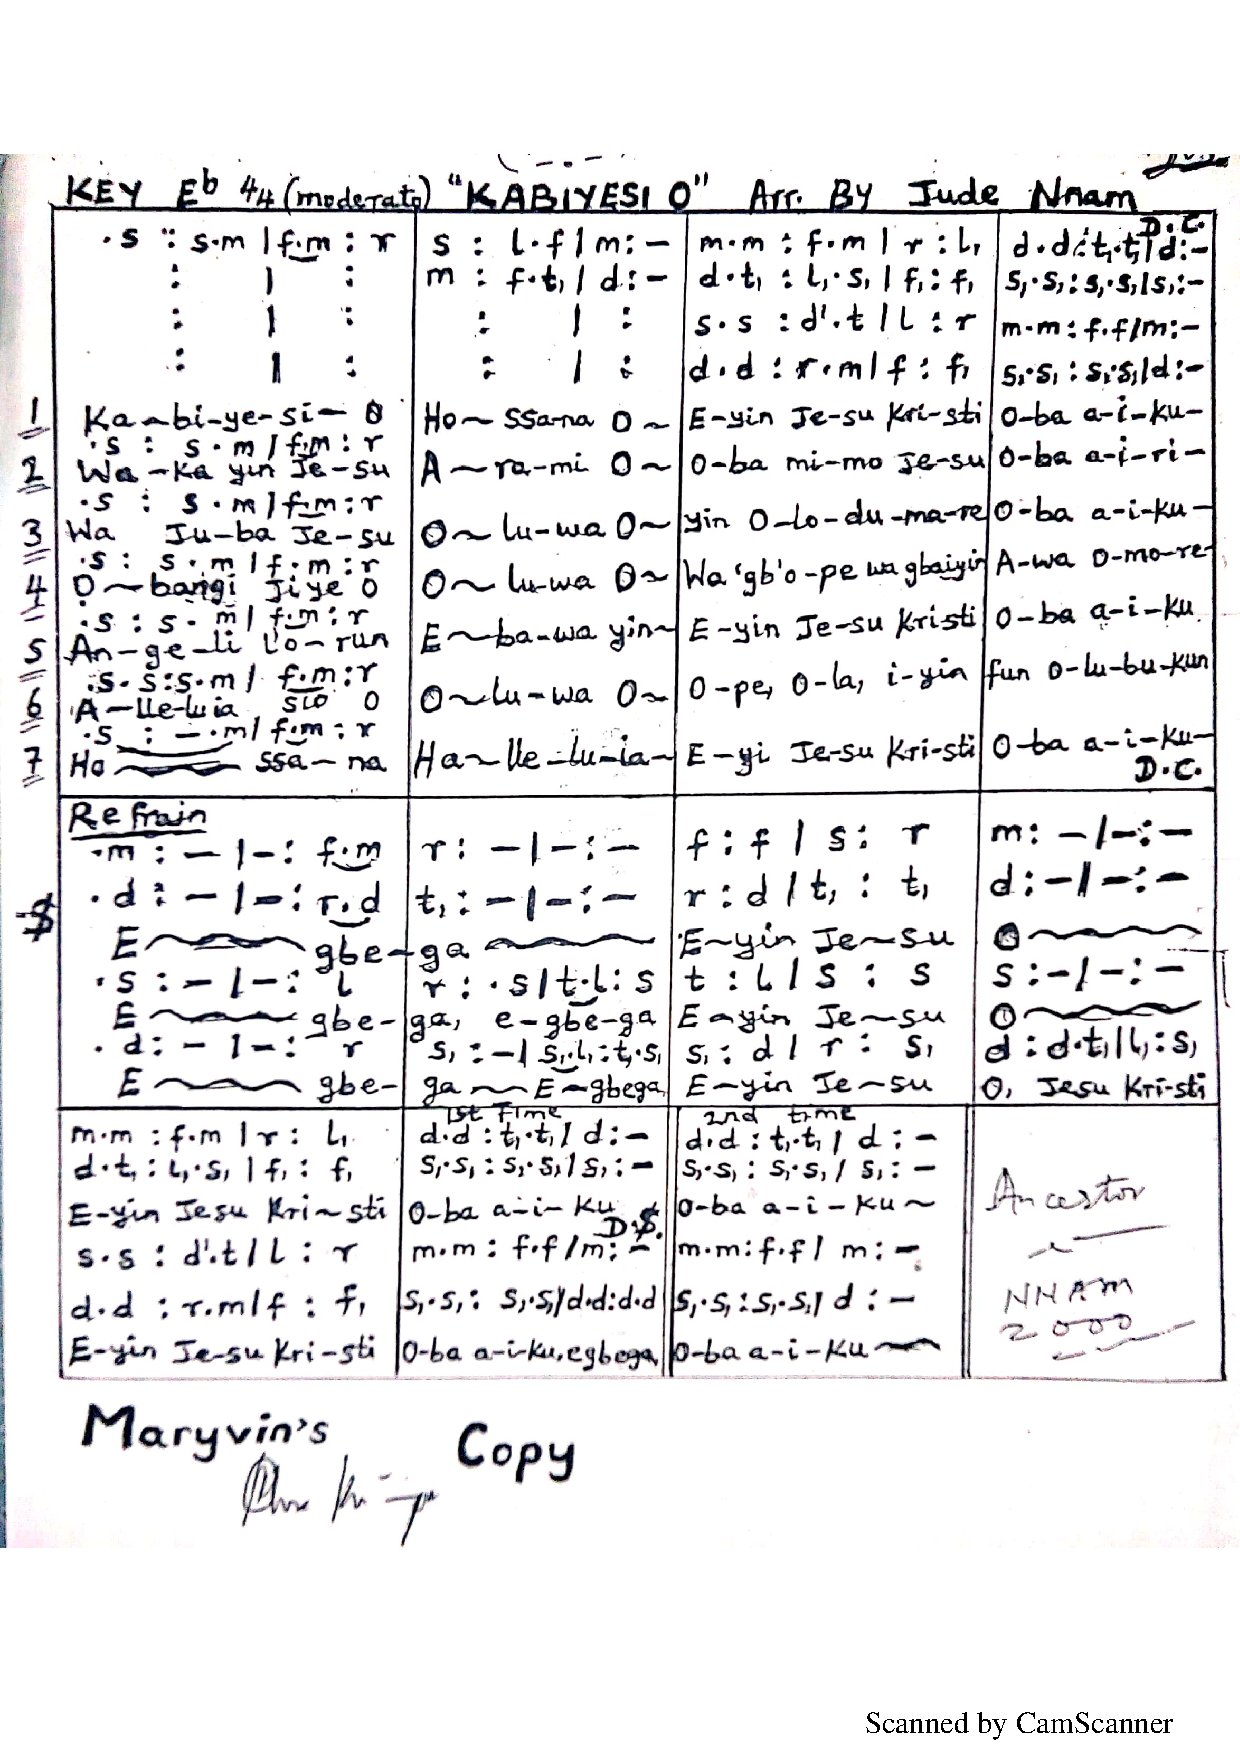 KEY Eb 4/4 (moderato) "KABIYESI O" Arr. By Jude Nnam
D.C.
.s : s.m | f.m : r   s : l.f | m : -   m.m : f.m | r : l,   d.d : t,.t, | d : -
: | :   m : f.t, | d : -   d.t, : l,.s, | f, : f,   s,.s, : s,.s, | s, : -
: | :   : | :   s.s : d'.t | l : r   m.m : f.f | m : -
: | :   : | :   d.d : r.m | f : f,   s,.s, : s,.s, | d : -
1 Ka-bi-ye-si- O   Ho~ssa-na O~   E-yin Je-su Kri-sti   O-ba a-i-ku-
.s : s.m | f.m : r
2 Wa-ka yin Je-su   A~ra-mi O~   O-ba mi-mo Je-su   O-ba a-i-ri-
.s : s.m | f.m : r
3 Wa Ju-ba Je-su   O~lu-wa O~   yin O-lo-du-ma-re   O-ba a-i-ku-
.s : s.m | f.m : r
4 O~bangi Jiye O   O~lu-wa O~   Wa 'gb'o-pe wa gbaiyin   A-wa o-mo-re-
.s : s.m | f.m : r
5 An-ge-li Lo-run   E~ba-wa yin~   E-yin Je-su Kristi   O-ba a-i-ku
.s.s : s.m | f.m : r
6 A-lle-luia sio O   O~lu-wa O~   O-pe, O-la, i-yin   fun O-lu-bu-kun
.s : -.m | f.m : r
7 Ho ssa-na   Ha~lle-lu-ia~   E-yi Je-su Kri-sti   O-ba a-i-ku-
D.C.
Refrain
.m : - | - : f.m   r : - | - : -   f : f | s : r   m : - | - : -
$ .d : - | - : r.d   t, : - | - : -   r : d | t, : t,   d : - | - : -
E~gbe-ga~   E~yin Je~su   O~
.s : - | - : l   r : .s | t.l : s   t : l | s : s   s : - | - : -
E~gbe-ga, e-gbe-ga   E~yin Je~su   O~
.d : - | - : r   s, : - | s,.l, : t,.s,   s, : d | r : s,   d : d.t, | l, : s,
E~gbe-ga~E~gbega   E~yin Je~su   O, Jesu Kri-sti
1st Time   2nd time
m.m : f.m | r : l,   d.d : t,.t, | d : -   d.d : t,.t, | d : -
d.t, : l,.s, | f, : f,   s,.s, : s,.s, | s, : -   s,.s, : s,.s, | s, : -
E-yin Jesu Kri~sti   O-ba a-i-ku   O-ba a-i-ku~
D.$.
s.s : d'.t | l : r   m.m : f.f | m : -   m.m : f.f | m : -
d.d : r.m | f : f,   s,.s, : s,.s, | d.d : d.d   s,.s, : s,.s, | d : -
E-yin Je-su Kri-sti   O-ba a-i-ku, egbega,   O-ba a-i-ku~
Ancestor
NNAM
2000
Maryvin's Copy
Scanned by CamScanner